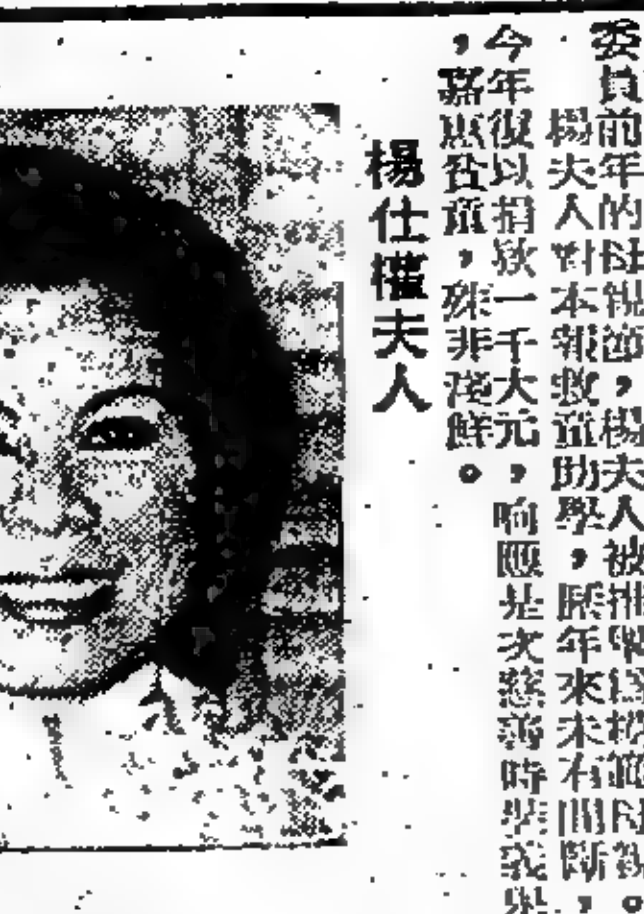 委員前年的母親節，楊夫人被推舉爲
楊夫人對本報救童助學，歷年來未有間斷，
今年復以捐欵一千大元，响應是次慈善時裝義
，嘉惠貧童，殊非淺鮮。
楊仕權夫人